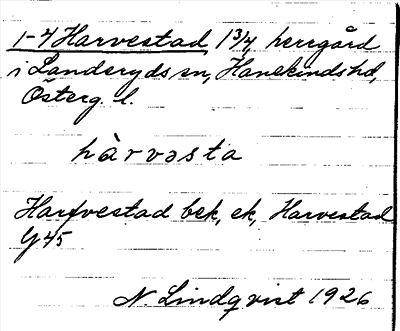 1-4 Harvestad 1 3/4, herrgård
i Landeryds sn, Hanekinds hd,
Österg. l.
hàrvəsta
Harfvestad bek, ek, Harvestad
G 45
N. Lindqvist 1926